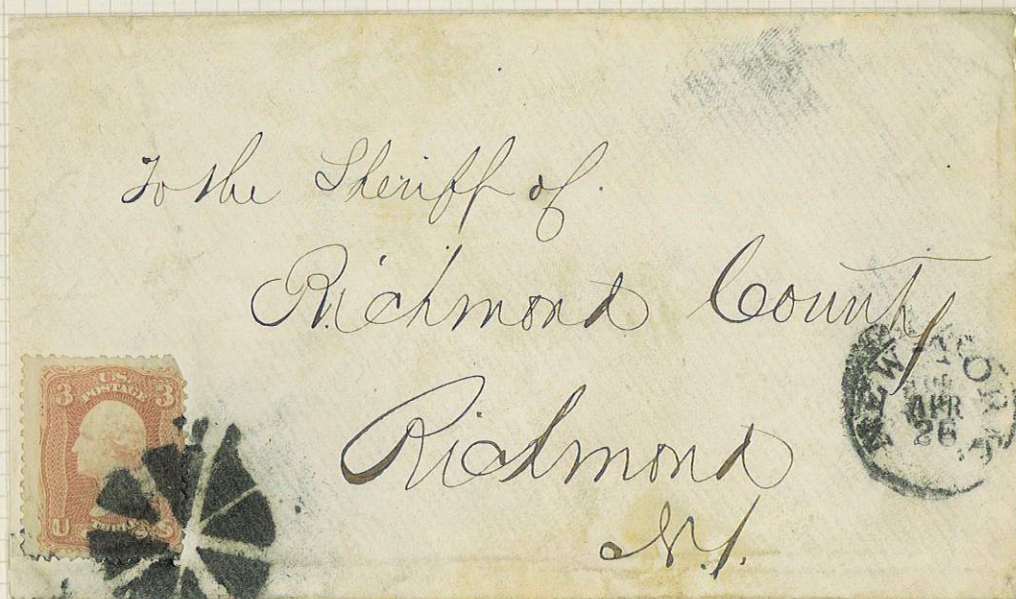 To the Sheriff of
Richmond County
Richmond
N.Y.
NEW YORK
APR
26
3 U.S. 3
POSTAGE
U S